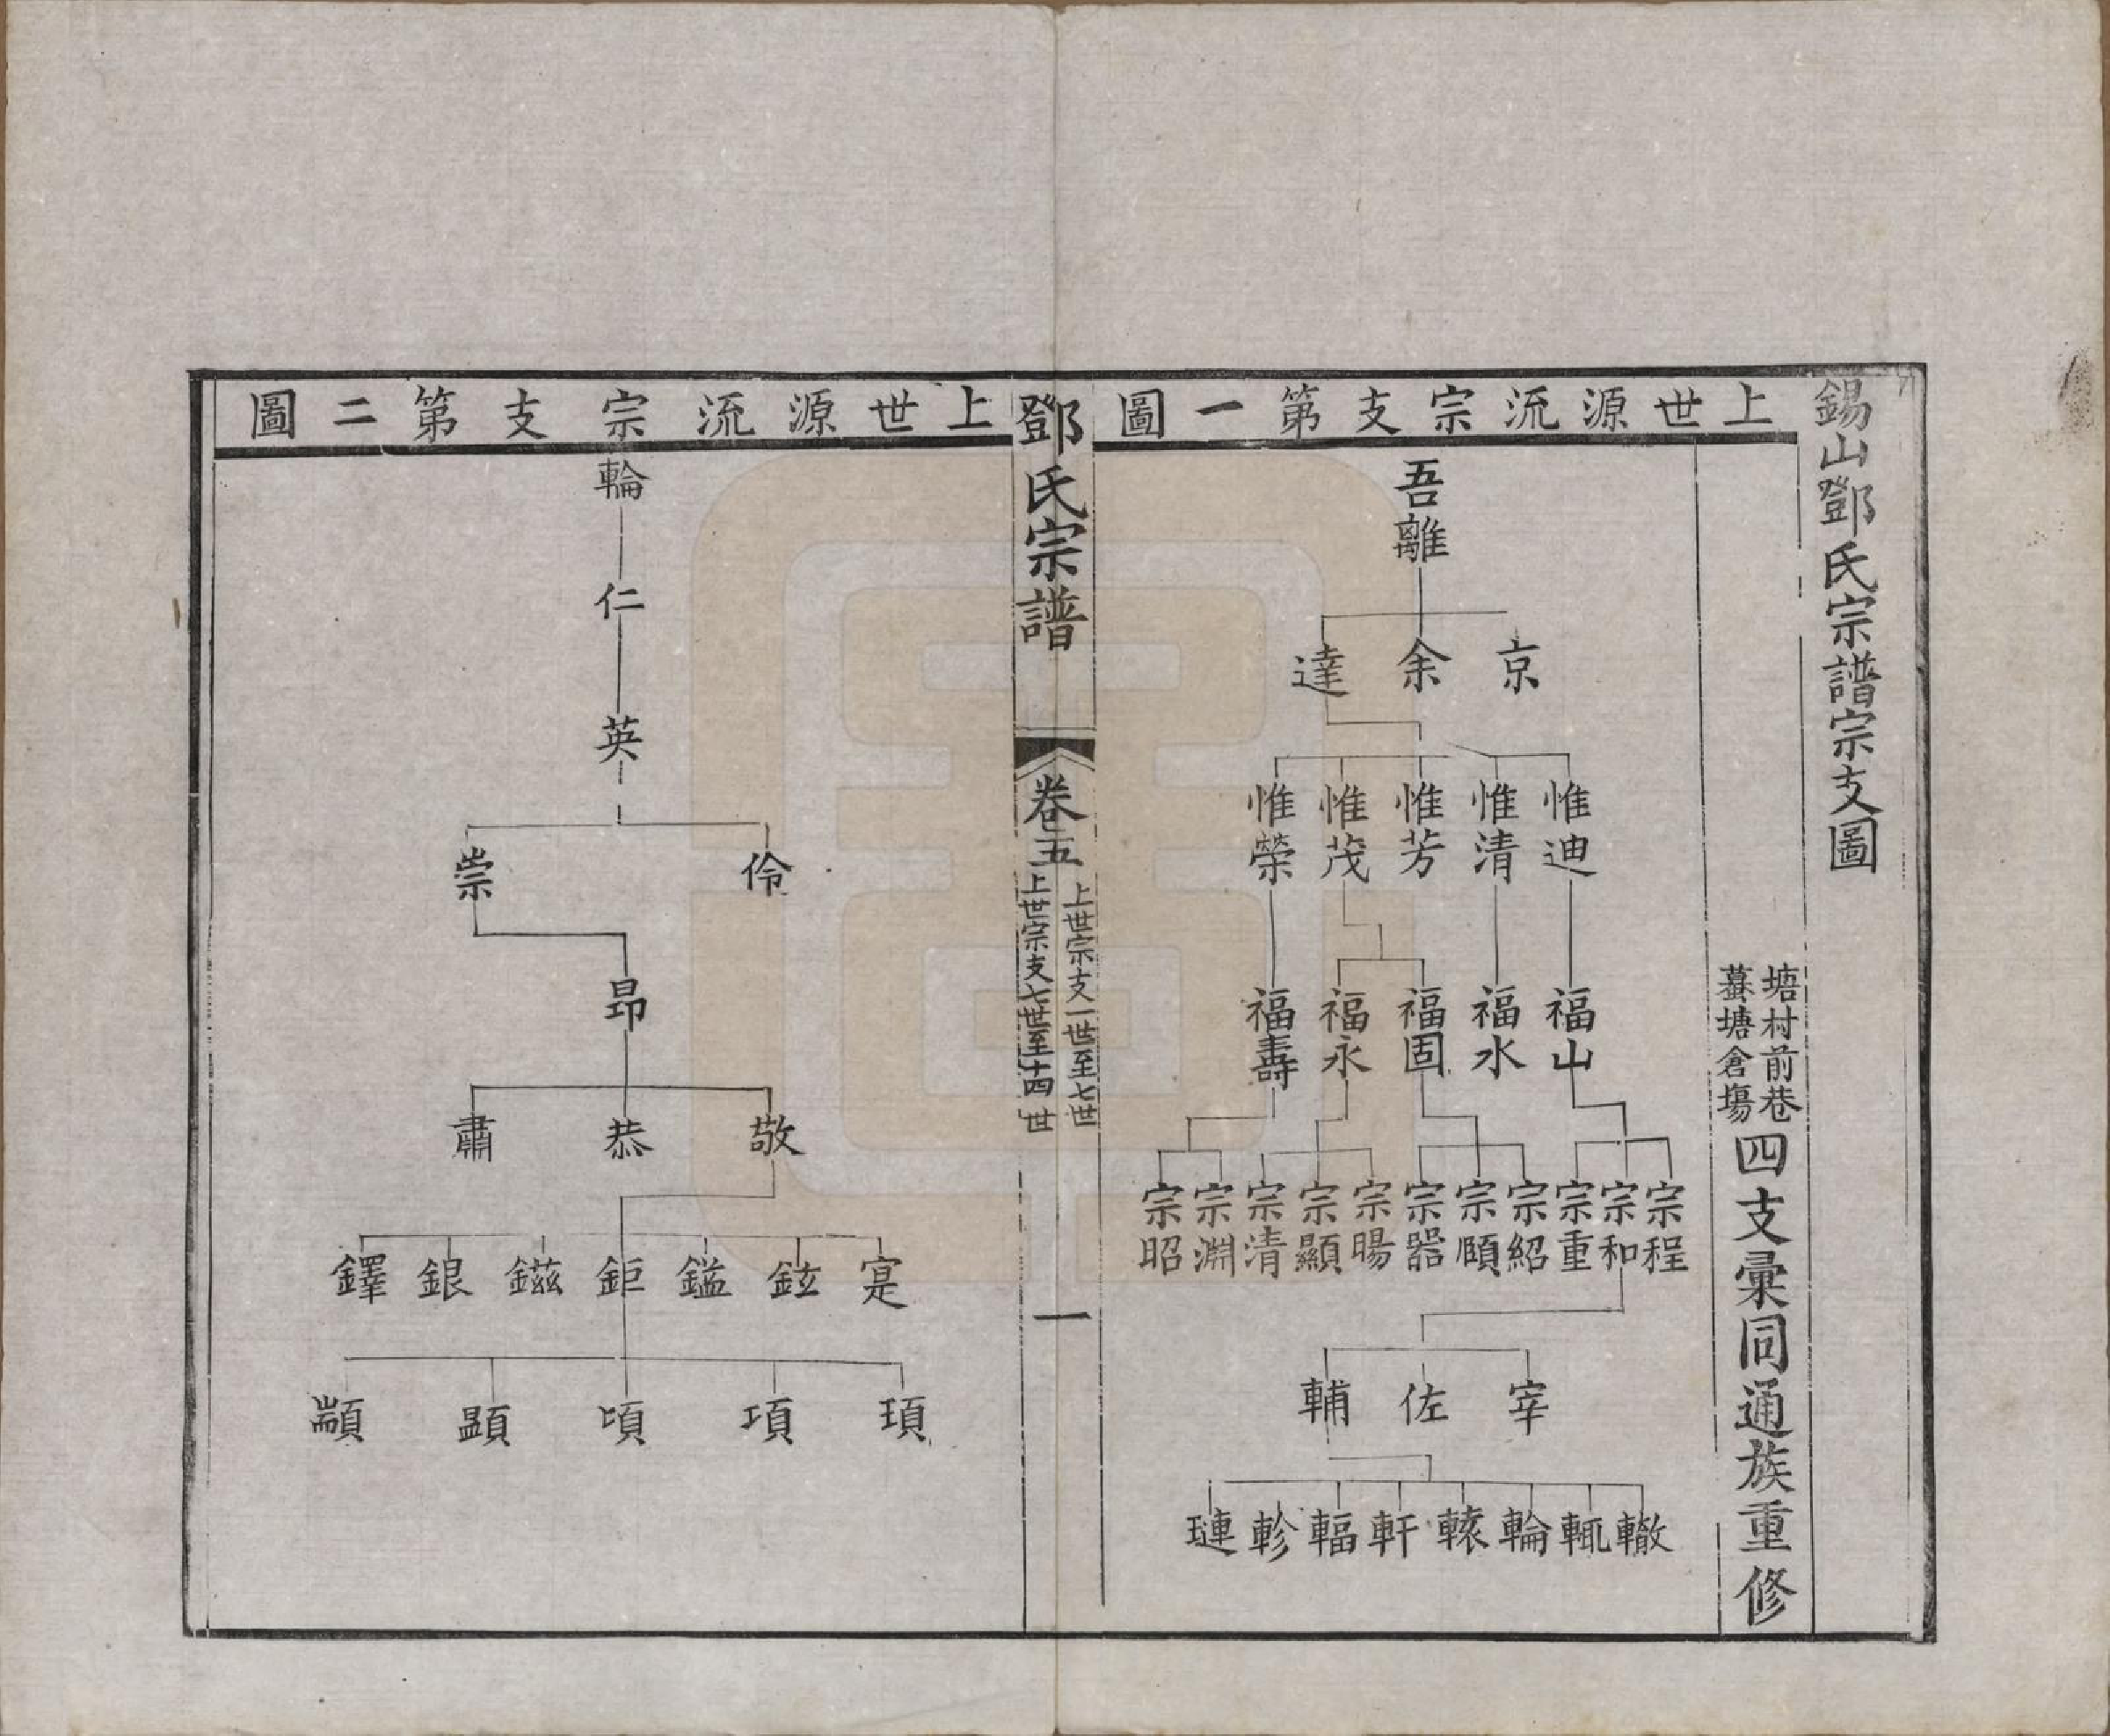 錫山鄧氏宗譜宗支圖
塘村前巷
蠡塘倉場
四支彙同通族重修
上世源流宗支第一圖
吾離
京 余 達
惟迪 惟清 惟芳 惟茂 惟榮
福山 福水 福固 福永 福壽
宗程 宗和 宗重 宗紹 宗頤 宗器 宗暘 宗顯 宗清 宗淵 宗昭
宰 佐 輔
轍 輒 輪 轅 軒 輻 軫 璉
鄧氏宗譜
卷五
上世宗支一世至七世
上世宗支七世至十四世
一
上世源流宗支第二圖
輪
仁
英
伶 崇
昂
敬 恭 肅
寔 鉉 鎰 鉅 鎡 銀 鐸
頊 項 頃 顕 顓